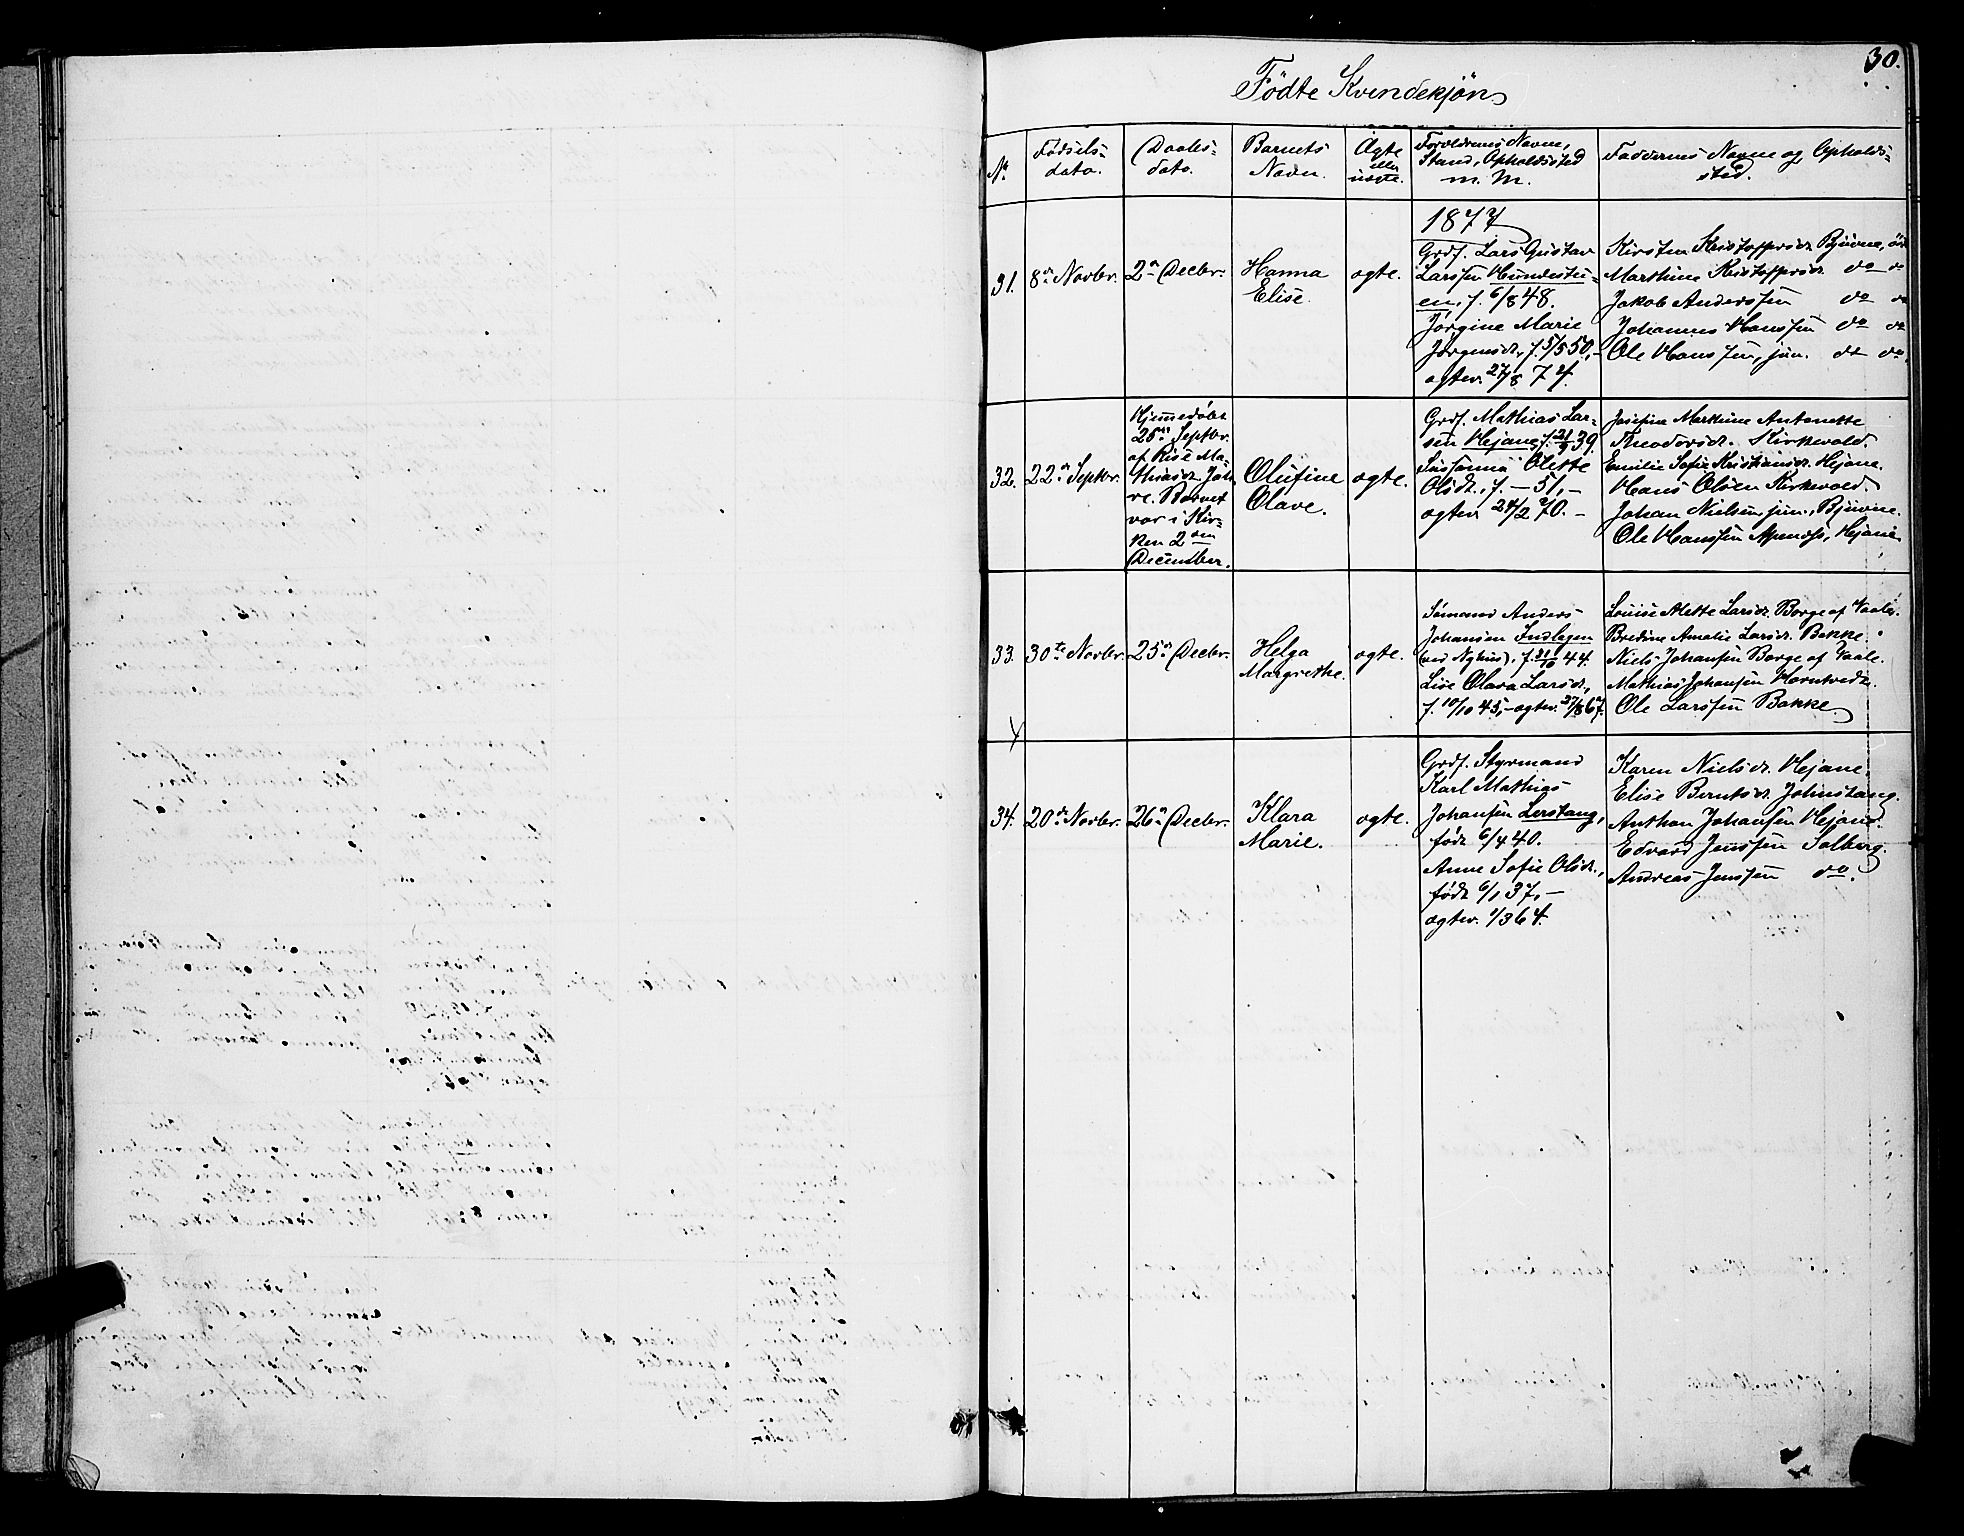 30.
Fødte Kvindekjøn
No.
Fødsels-
dato.
Daabs-
dato.
Barnets
Navn.
Ægte
eller
uægte.
Forældrenes Navne,
Stand, Opholdssted
m. M.
Faddernes Navne og Opholds-
sted.
1877
31.
8de Novbr.
2den Decbr.
Hanna
Elise.
ægte.
Grdf. Lars Gustav
Larssen Hundestu-
en, f. 6/8 48.
Jørgine Marie
Jørgensdr., f. 5/5 50,-
ægtev. 27/8 74.
Kirsten Kristoffersdr. Bjuvne,
Marthine Kristoffersdr. do do
Jakob Anderssen do do
Johannes Hanssen do do
Ole Hanssen, jun. do do.
32.
22de Septbr.
Hjemmedøbt
25de Septbr.
af Rise Ma-
thiasdr. Jah
re. Barnet
var i Kir-
ken 2den
December.
Olufine
Olave.
ægte.
Grdf. Mathias Lar-
sen Hejane, f. 21/9 39.
Susanna Olette
Olsdr., f. - 51, -
ægtev. 24/2 70. -
Josefine Marthine Antonette
Theodorsdr. Kirkevold
Emilie Sofie Kristiansdr. Hejane.
Hans Olsen Kirkevold.
Johan Nielsen, jun., Bjuvne.
Ole Hanssen Hejane
33.
30te Novbr.
25de Decbr.
Helga
Margrethe.
ægte.
Sømand Anders
Johansen Indlægen
(ved Nyhus), f. 31/10 44.
Lise Olava Larsdr.,
f. 10/10 45, - ægtev. 27/8 67.
Louise Alette Larsdr. Borge af Vaale.
Bredine Amalie Larsdr. Bakke.
Niels Johansen Borge af Vaale.
Mathias Johansen Horntvedt.
Ole Larssen Bakke
34.
20de Novbr.
26de Decbr.
Klara
Marie.
ægte.
Grdf. Styrmand
Karl Mathias
Johansen Lerstang,
født 6/4 40.
Anne Sofie Olsdr.,
født 6/1 37, -
ægtev. 1/3 64.
Karen Nielsdr. Hejane,
Elise Berntsdr. Johnstang.
Anthon Johansen Hejane.
Edvard Jenssen Solberg.
Andreas Jenssen do.